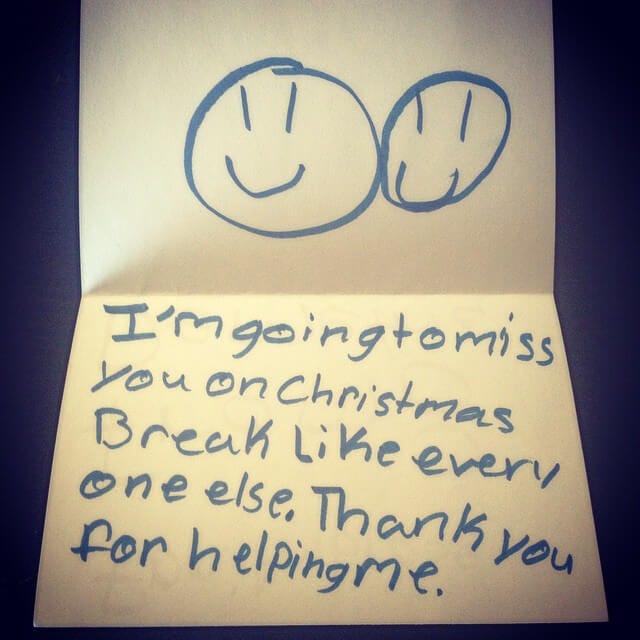 I'm going to miss
you on Christmas
Break Like every
one else. Thank you
for helping me.